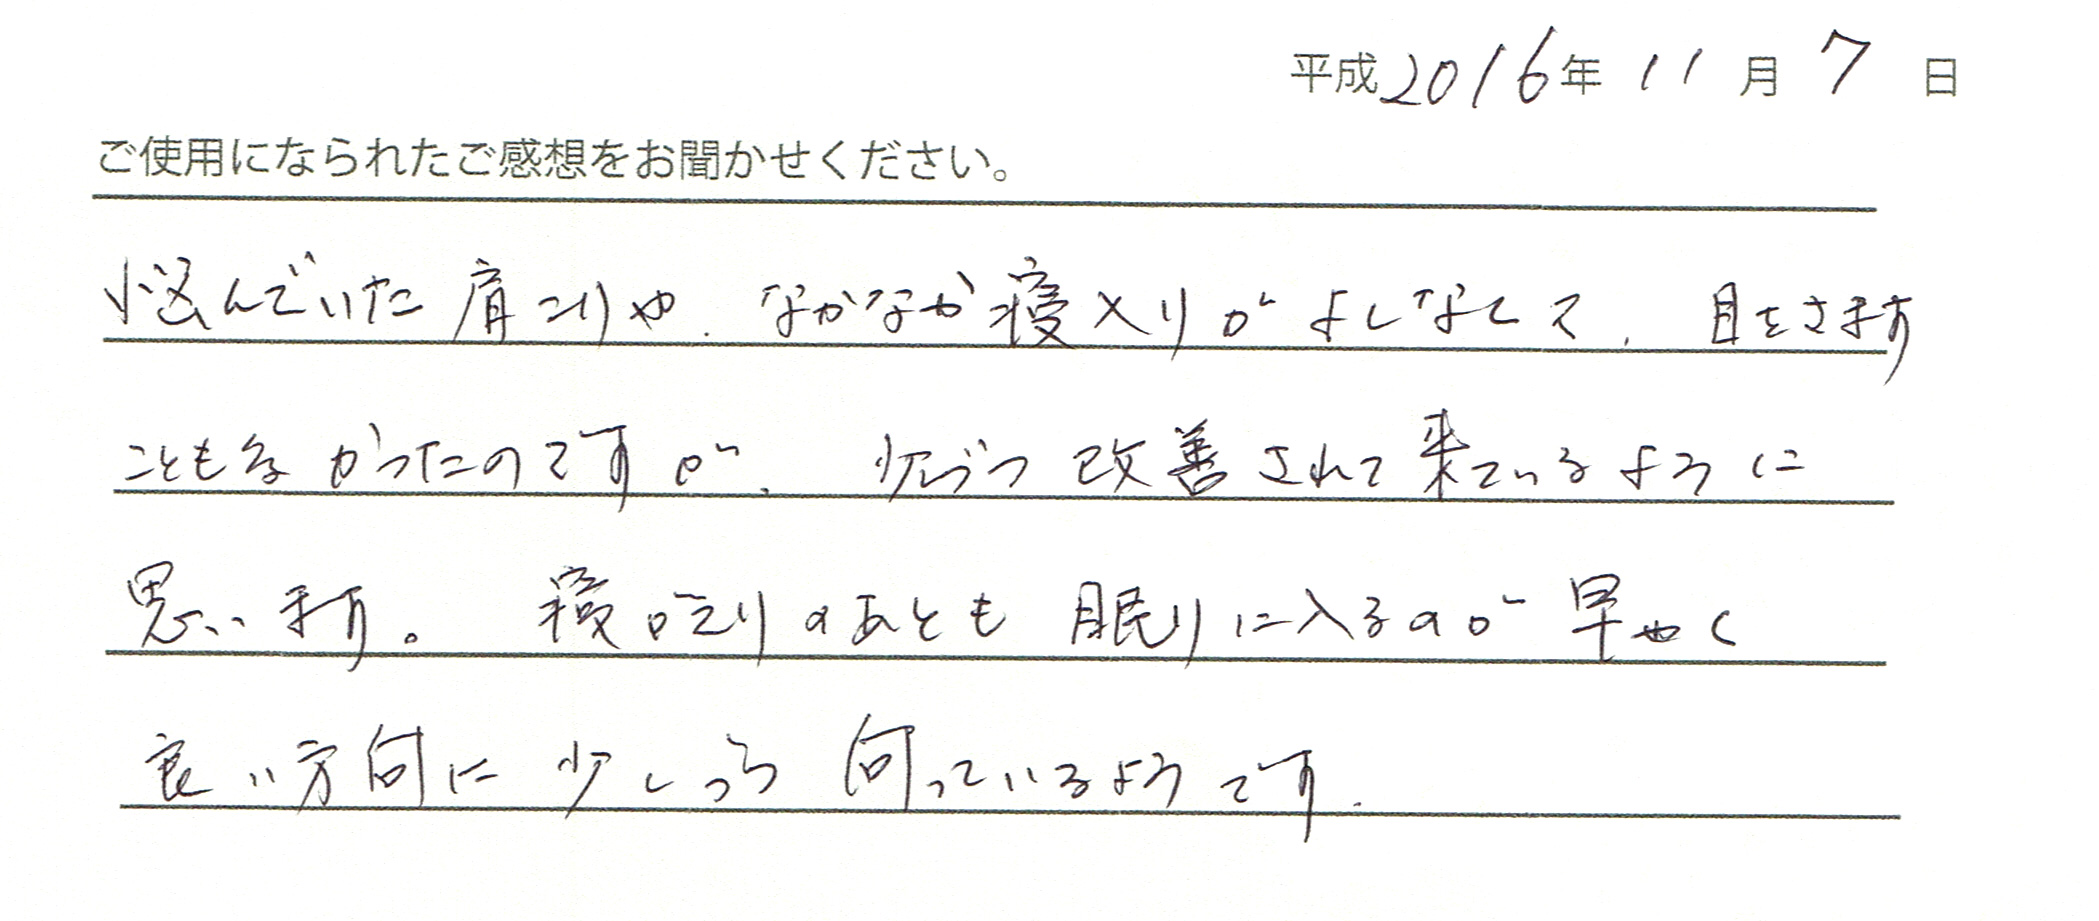 平成2016年 11月 7日
ご使用になられたご感想をお聞かせください。
悩んでいた肩こりや、なかなか寝入りがよくなくて、目をさます
ことも多かったのですが、少しづつ改善されて来ているように
思います。寝がえりのあとも眠りに入るのが早やく
良い方向に少しづつ向っているようです。